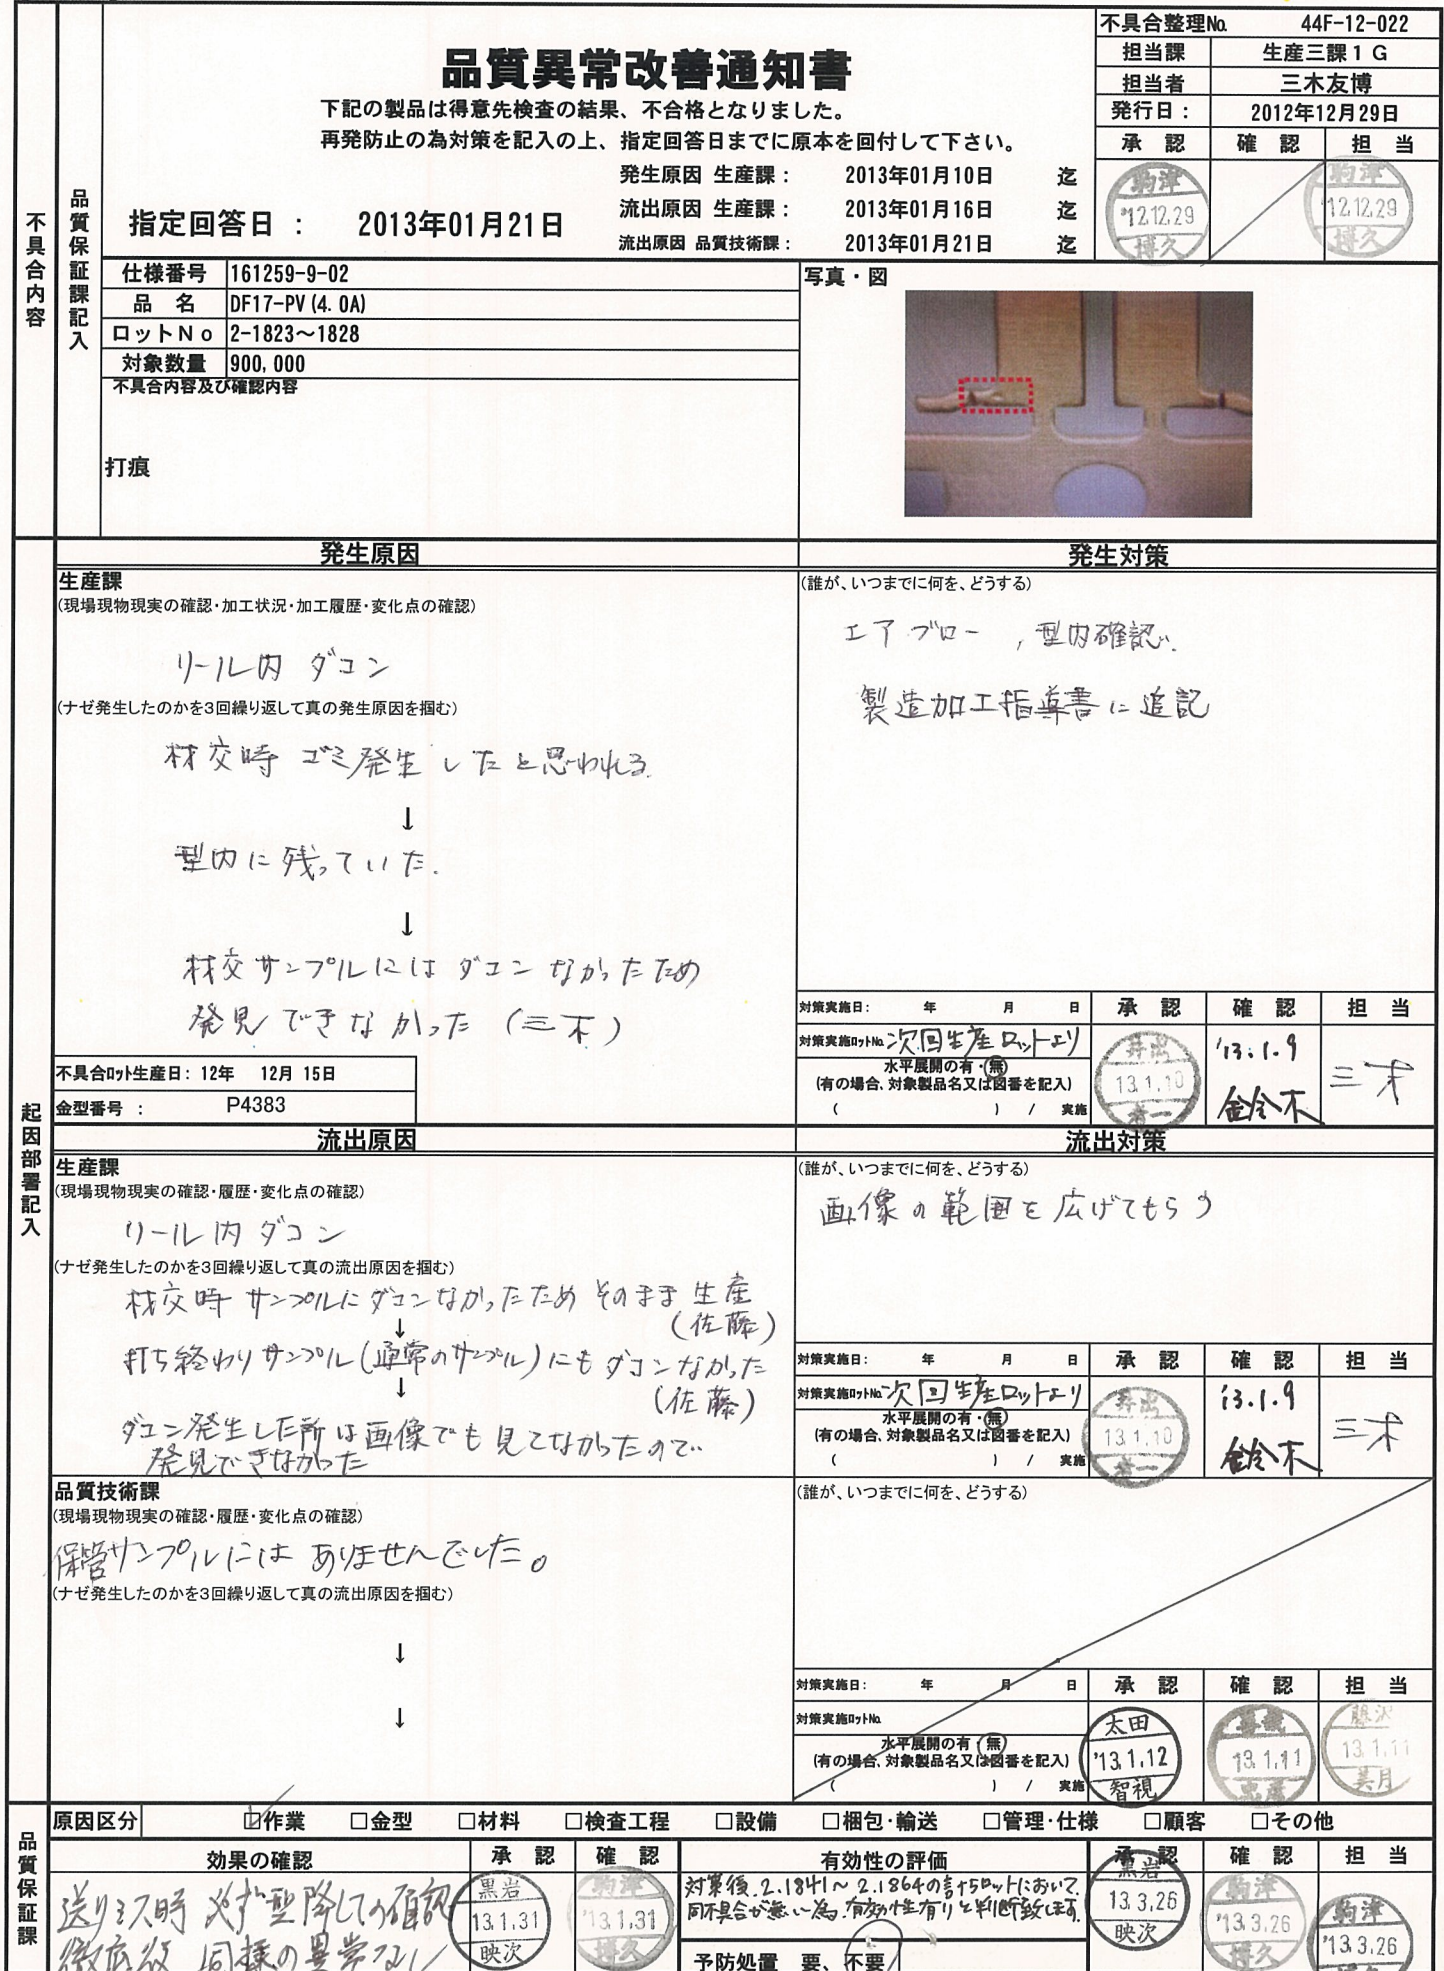 不具合整理No. 44F-12-022
担当課 生産三課1G
担当者 三木友博
発行日: 2012年12月29日
承認 確認 担当
駒津 '12.12.29 博久
駒津 '12.12.29 博久
品質異常改善通知書
下記の製品は得意先検査の結果、不合格となりました。
再発防止の為対策を記入の上、指定回答日までに原本を回付して下さい。
発生原因 生産課: 2013年01月10日 迄
流出原因 生産課: 2013年01月16日 迄
流出原因 品質技術課: 2013年01月21日 迄
指定回答日: 2013年01月21日
不具合内容
品質保証課記入
仕様番号 161259-9-02
品名 DF17-PV(4.0A)
ロットNo 2-1823～1828
対象数量 900,000
不具合内容及び確認内容
打痕
写真・図
起因部署記入
発生原因
生産課
(現場現物現実の確認・加工状況・加工履歴・変化点の確認)
リール内 ダコン
(ナゼ発生したのかを3回繰り返して真の発生原因を掴む)
材交時 ゴミ発生したと思われる.
↓
型内に残っていた.
↓
材交サンプルにはダコンなかったため
発見できなかった (三木)
不具合ロット生産日: 12年 12月 15日
金型番号 : P4383
発生対策
(誰が、いつまでに何を、どうする)
エアブロー , 型内確認.
製造加工指導書に追記
対策実施日: 年 月 日
承認 確認 担当
対策実施ロットNo. 次回生産ロットより
水平展開の有・無
(有の場合、対象製品名又は図番を記入)
( ) / 実施
13.1.10
'13.1.9 鈴木
三木
流出原因
生産課
(現場現物現実の確認・履歴・変化点の確認)
リール内ダコン
(ナゼ発生したのかを3回繰り返して真の流出原因を掴む)
材交時サンプルにダコンなかったためそのまま生産
(佐藤)
↓
打ち終わりサンプル(通常のサンプル)にもダコンなかった
(佐藤)
↓
ダコン発生した所は画像でも見てなかったので
発見できなかった
流出対策
(誰が、いつまでに何を、どうする)
画像の範囲を広げてもらう
対策実施日: 年 月 日
承認 確認 担当
対策実施ロットNo. 次回生産ロットより
水平展開の有・無
(有の場合、対象製品名又は図番を記入)
( ) / 実施
13.1.10
'13.1.9 鈴木
三木
品質技術課
(現場現物現実の確認・履歴・変化点の確認)
保管サンプルにはありませんでした。
(ナゼ発生したのかを3回繰り返して真の流出原因を掴む)
↓
↓
(誰が、いつまでに何を、どうする)
対策実施日: 年 月 日
承認 確認 担当
対策実施ロットNo.
水平展開の有・無
(有の場合、対象製品名又は図番を記入)
( ) / 実施
太田 '13.1.12 智視
13.1.11
藤沢 13.1.11 美月
品質保証課
原因区分 □作業 □金型 □材料 □検査工程 □設備 □梱包・輸送 □管理・仕様 □顧客 □その他
効果の確認
承認 確認
送りミス時 必ず型降しての確認
徹底後 同様の異常なし
黒岩 13.1.31 映次
駒津 '13.1.31 博久
有効性の評価
承認 確認 担当
対策後.2.1841～2.1864の計5ロットにおいて
同不具合が無い為.有効性有りと判断致します.
予防処置 要、不要
黒岩 13.3.26 映次
駒津 '13.3.26 博久
駒津 '13.3.26